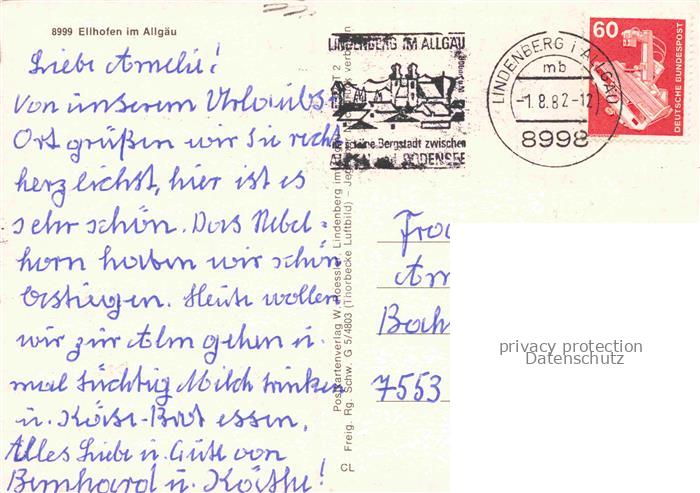 8999 Ellhofen im Allgäu
Liebe Amelie!
Von unserem Urlaubs-
Ort grüßen wir Sie recht
herzlichst, hier ist es
sehr schön. Das Nebel-
horn haben wir schön
bestiegen. Heute wollen
wir zur Alm gehen u.
mal tüchtig Milch trinken
u. Käse-Brot essen.
Alles Liebe u. Gute von
Bernhard u. Käthe!
CL
Postkartenverlag W. Roessler, Lindenberg im
Freig. Rg. Schw. G 5/4803 (Thorbecke Luftbild) -
LINDENBERG IM ALLGÄU
schöne Bergstadt zwischen
BODENSEE
LINDENBERG i ALLGÄU
mb
-1.8.82-12
8998
60
DEUTSCHE BUNDESPOST
Frau
Am
Bah
7553
privacy protection
Datenschutz